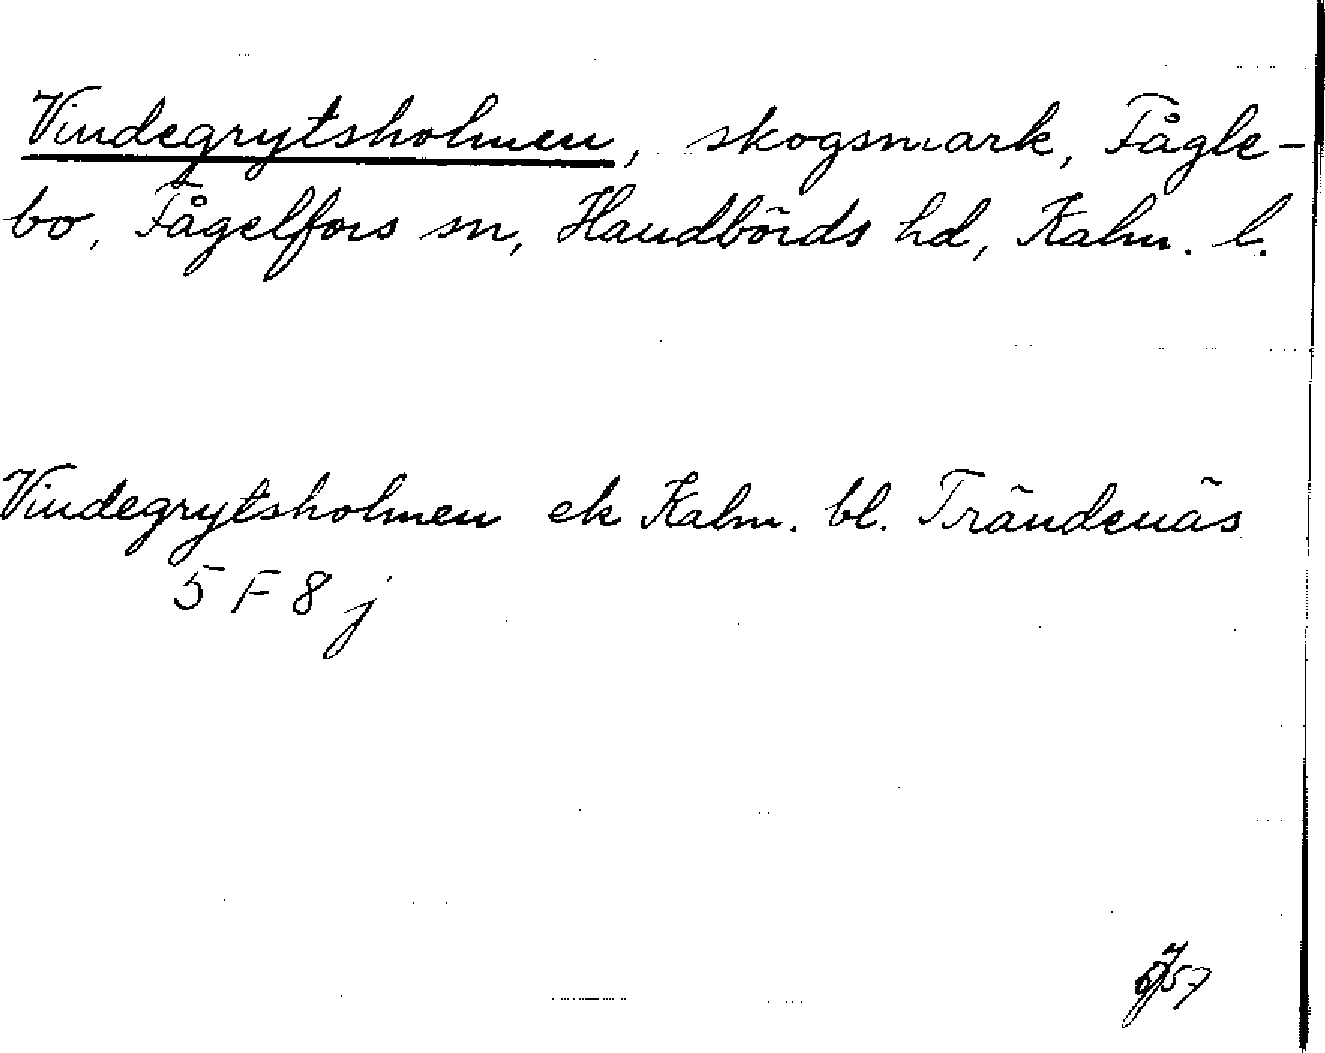 Vindegrytsholmen, skogsmark, Fågle-
bo, Fågelfors sn, Handbörds hd, Kalm. l.
Vindegrytsholmen ek Kalm. bl. Trändenäs
5 F 8 j